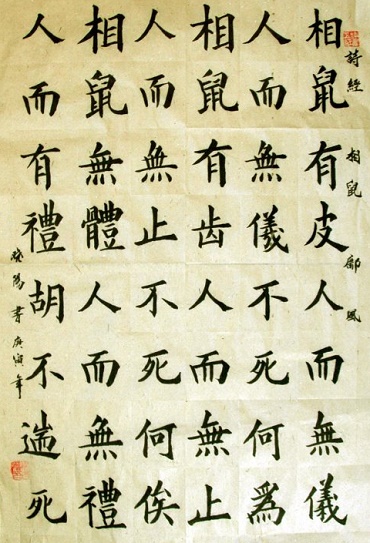 詩經 相鼠 鄘風
相鼠有皮人而無儀
人而無儀不死何爲
相鼠有齿人而無止
人而無止不死何俟
相鼠無體人而無禮
人而有禮胡不遄死
書庚寅年